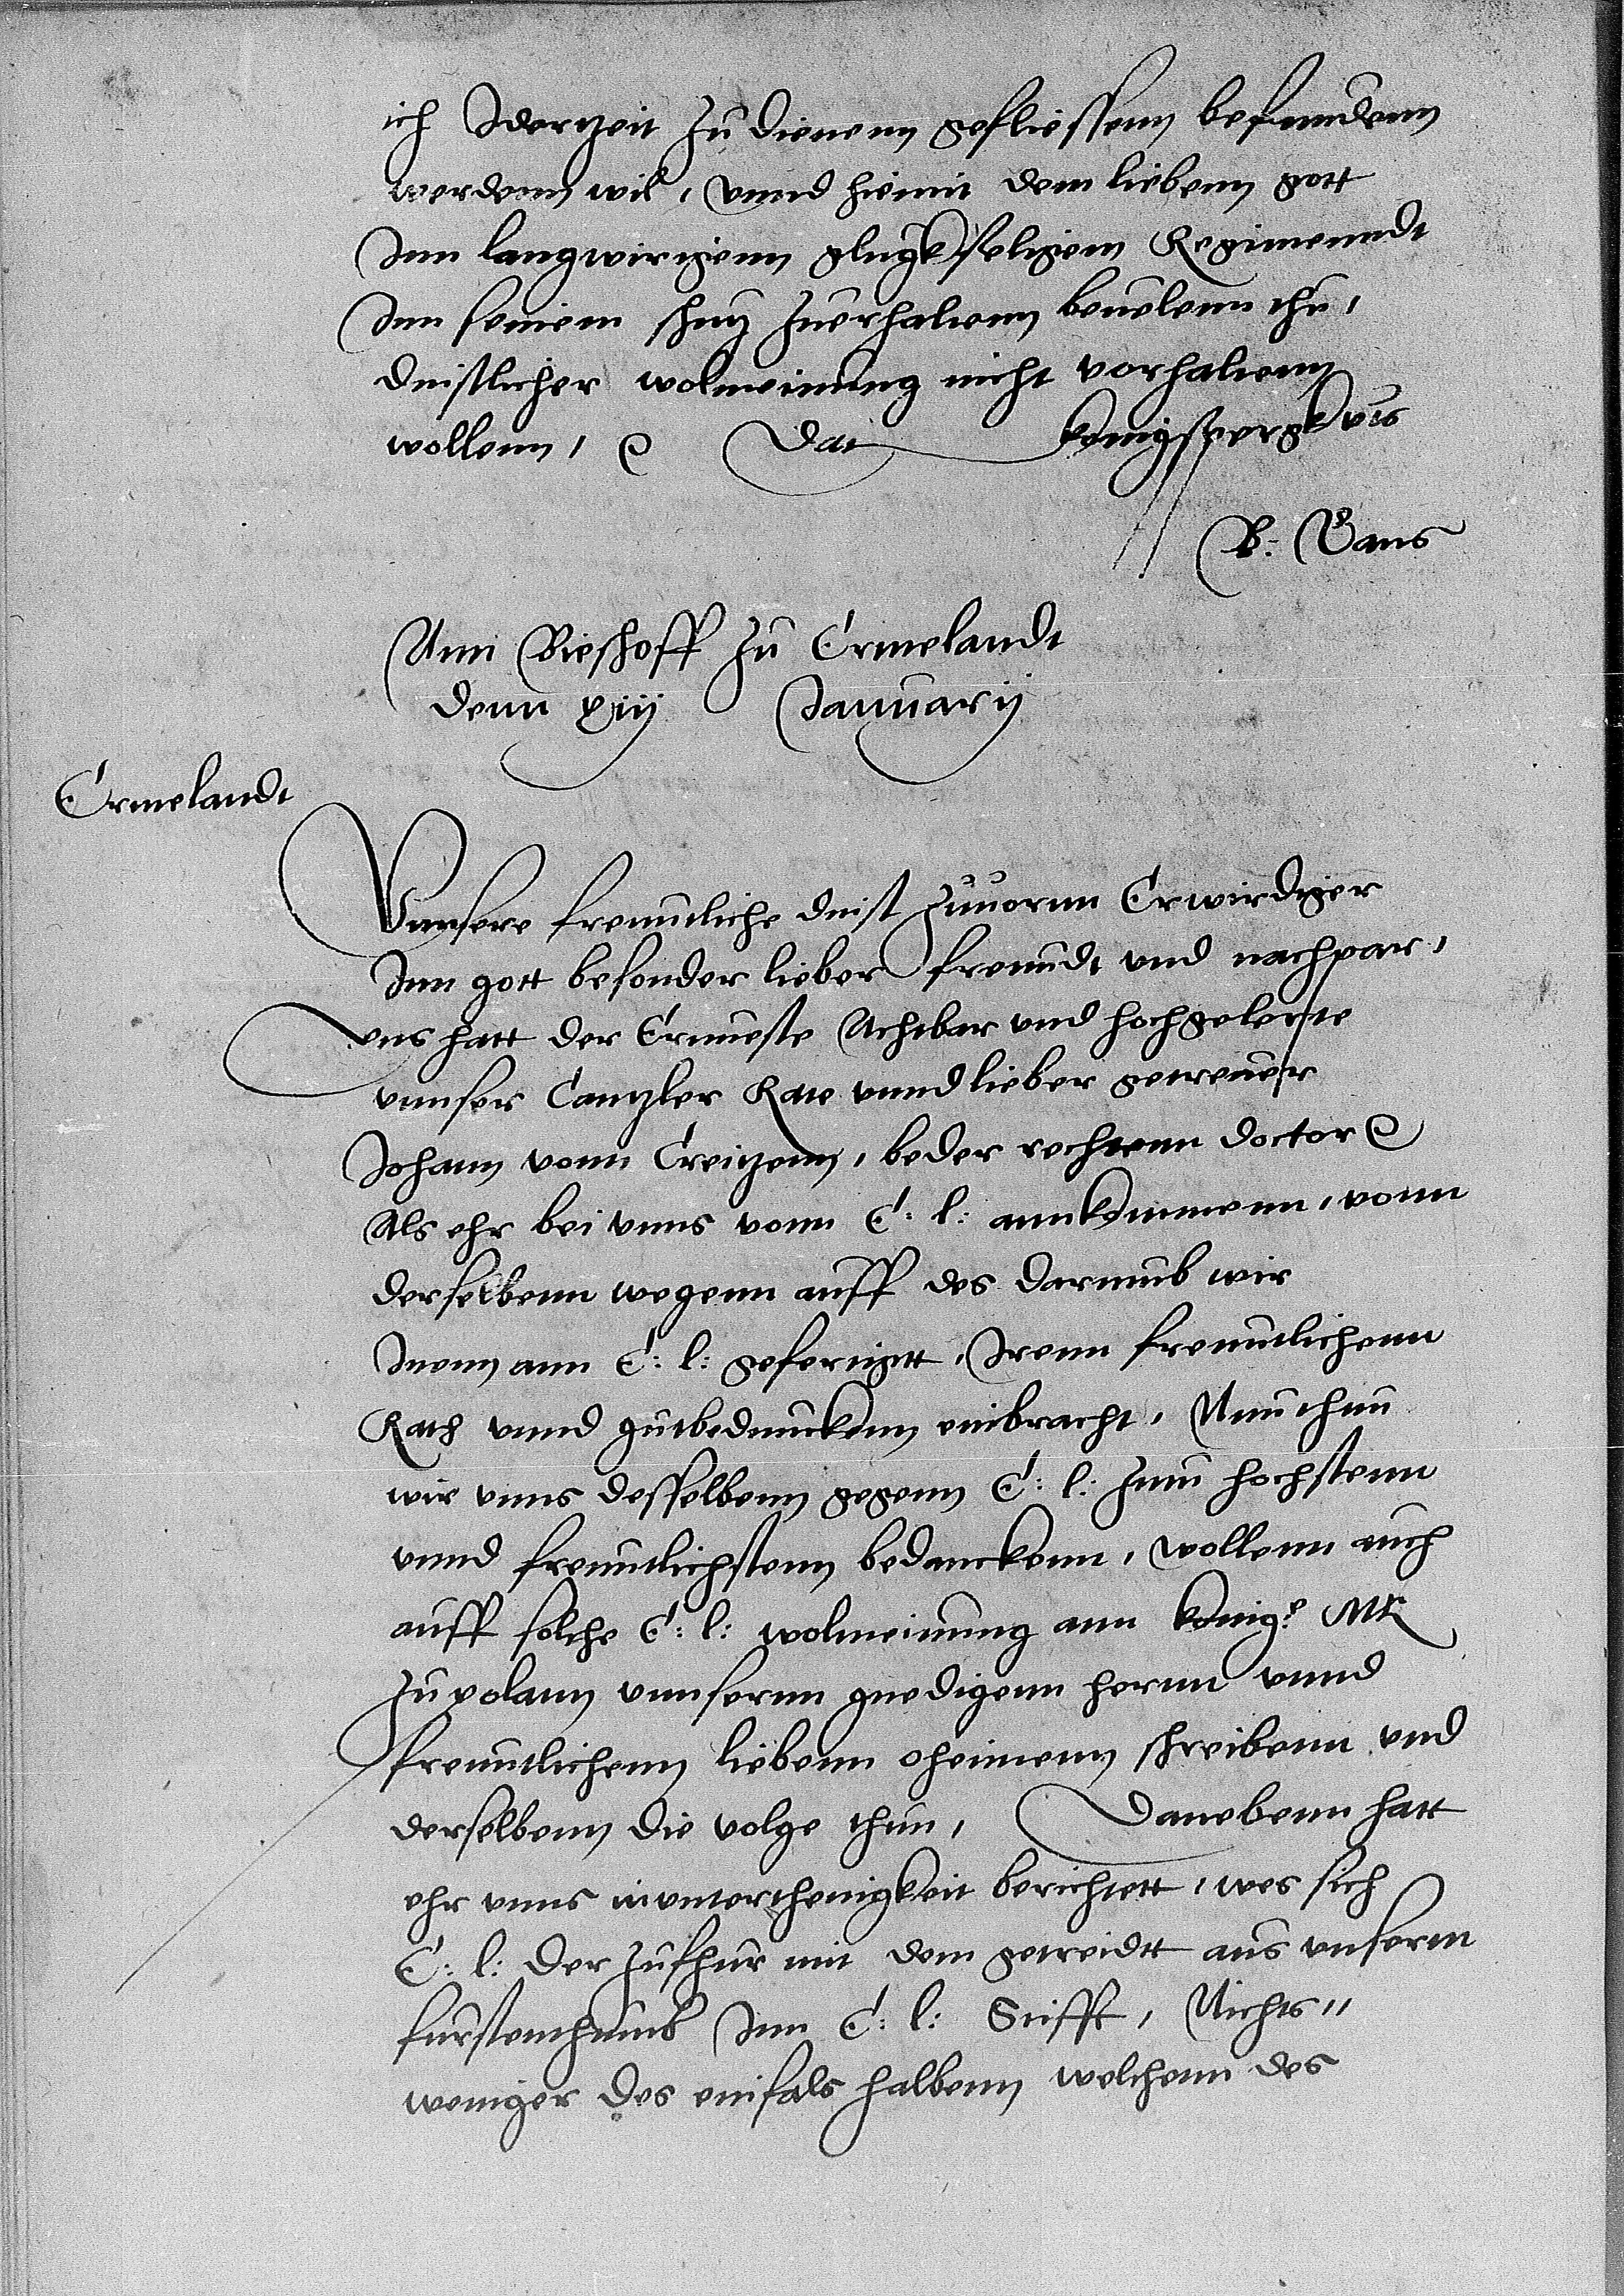 ich Iderzeit zu dienenn geflissenn befundenn
werdenn wil, vnnd hiemit dem liebenn gott
Inn langwirigenn glugkseligem Regimenndt
Inn seinem schutz zuerhaltenn beuelenn thu,
dinstlicher wolmeinung nicht vorhaltenn
wollenn, Dat konigspergk vts
B: Gans
Ann Bischoff zu Ermelandt
denn xiij Januarij
Ermelandt
Vnnsere freuntliche dinst zuuornn Erwirdiger
Inn gott besonder lieber freundt vnd nachpar,
Vns hatt der Ernueste Achtbar vnd hochgelerte
vnnser Cantzler Rate vnnd lieber getreuer
Johann vonn Creitzenn, beder rechtenn doctor
Als ehr bei vnns vonn E: l: annkommenn, vonn
derselbenn wegenn auff des darumb wir
Inenn ann E: l: gefertigtt, Irenn freuntlichenn
Rath vnnd gutbeduncken einbracht, Nun thun
wir vnns desselbenn gegenn E: l: zum hochstenn
vnnd freuntlichstenn bedanckenn, wollenn auch
auff solche E: l: wolmeinung ann konig: Mt
zu polann vnnsernn gnedigenn hernn vnnd
freuntlichenn liebenn oheimenn schreibenn vnd
derselbenn die volge thun, Danebenn hatt
ehr vnns in vnterthenigkeit berichtett, wes sich
E: l: der zufhur mit dem getreidtt aus vnserm
furstenthumb Inn E: l: Stifft, Nichts,,
weniger des einfals halbenn welchenn des